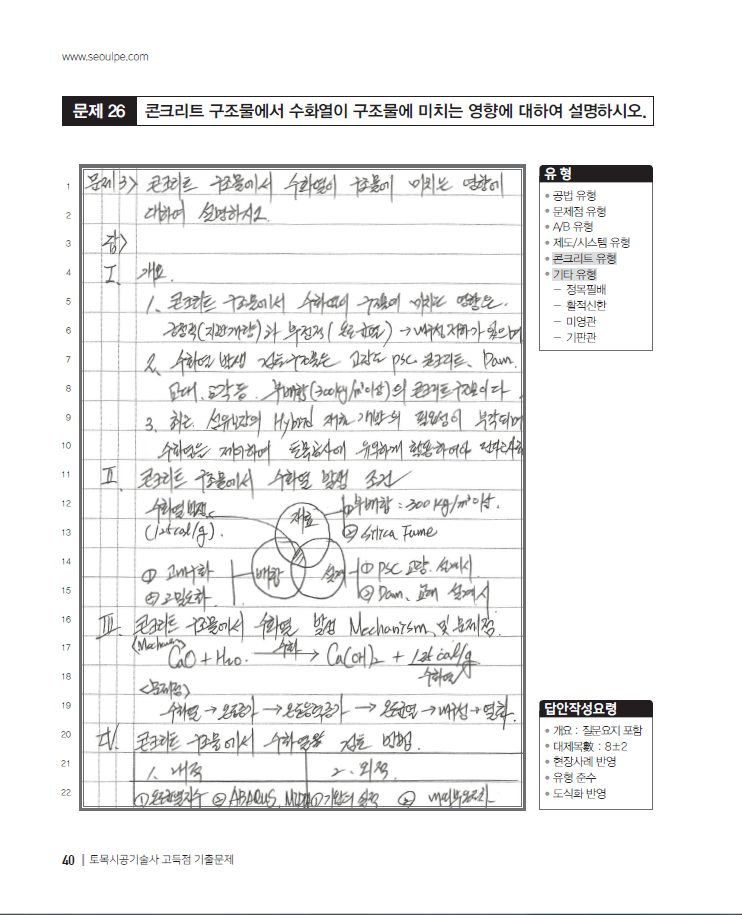 www.seoulpe.com
문제 26 콘크리트 구조물에서 수화열이 구조물에 미치는 영향에 대하여 설명하시오.
1 문제 3> 콘크리트 구조물에서 수화열이 구조물에 미치는 영향에
2 대하여 설명하시오.
3 답>
4 I. 개요.
5 1. 콘크리트 구조물에서 수화열이 구조물에 미치는 영향은
6 긍정적( )과 부정적(온도균열) → 내구성 저하가 있으며
7 2. 수화열 발생 검토 구조물은 교량의 PSC 콘크리트, Dam.
8 교대, 교각 등. 부배합(300kg/m³이상)의 콘크리트 구조물이다.
9 3. 최근 Hybrid 재료 개발의 필요성이 부각되며
10 수화열을 제어하여 토목공사에 유용하게 활용하여야
11 II. 콘크리트 구조물에서 수화열 발생 조건
12 수화열 발생. (125cal/g). 재료 ① 부배합 : 300kg/m³이상.
13 ② Silica Fume
14 ① 고내구화 배합 설계 ① PSC 교량. 설계시.
15 ② 고밀도화 ② Dam. 교대 설계시
16 III. 콘크리트 구조물에서 수화열 발생 Mechanism 및 문제점.
17 <Mechanism> CaO + H₂O 수화 → Ca(OH)₂ + 125cal/g
18 수화열
<문제점>
19 수화열 → 온도증가 → 온도응력증가 → 온도균열 → 내구성 → 열화.
20 IV. 콘크리트 구조물에서 수화열 검토 방법.
21 1. 내적 2. 외적.
22 ① 온도균열지수 ② ABAQUS, MIDAS ① 기왕의 실적 ②
유 형
• 공법 유형
• 문제점 유형
• A/B 유형
• 제도/시스템 유형
• 콘크리트 유형
• 기타 유형
– 정목필배
– 활적신한
– 미영관
– 기판관
답안작성요령
• 개요 : 질문요지 포함
• 대제목數 : 8±2
• 현장사례 반영
• 유형 준수
• 도식화 반영
40 | 토목시공기술사 고득점 기출문제